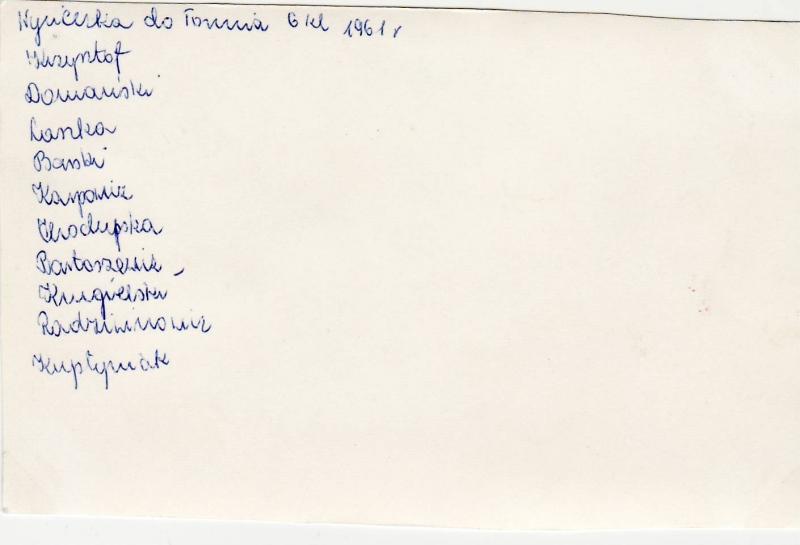 Wycieczka do Torunia 6 kl 1961 r
Krzysztof
Domański
Laszka
Barski
Karpowicz
Chodupska
Bartoszewicz
Radziwinowicz
Kupłyniak